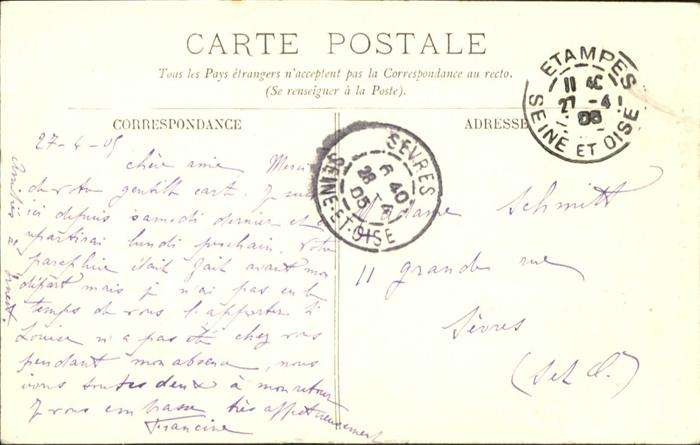 CARTE POSTALE
Tous les Pays étrangers n'acceptent pas la Correspondance au recto.
(Se renseigner à la Poste).
CORRESPONDANCE
ADRESSE
ETAMPES
11 40
27 -4
05
SEINE ET OISE
SEVRES
6 40
28 - 4
05
SEINE-ET-OISE
27-4-05
chère amie Merci
de votre gentille carte. Je suis
ici depuis samedi dernier et
repartirai lundi prochain. Votre
était fait avant mon
départ mais je n'ai pas eu le
temps de vous l'apporter. Si
Louise n'a pas été chez vous
pendant mon absence, nous
irons toutes deux à mon retour
Je vous embrasse très affectueusement
Francine
Madame Schmitt
11 grande rue
Sèvres
(S et O.)